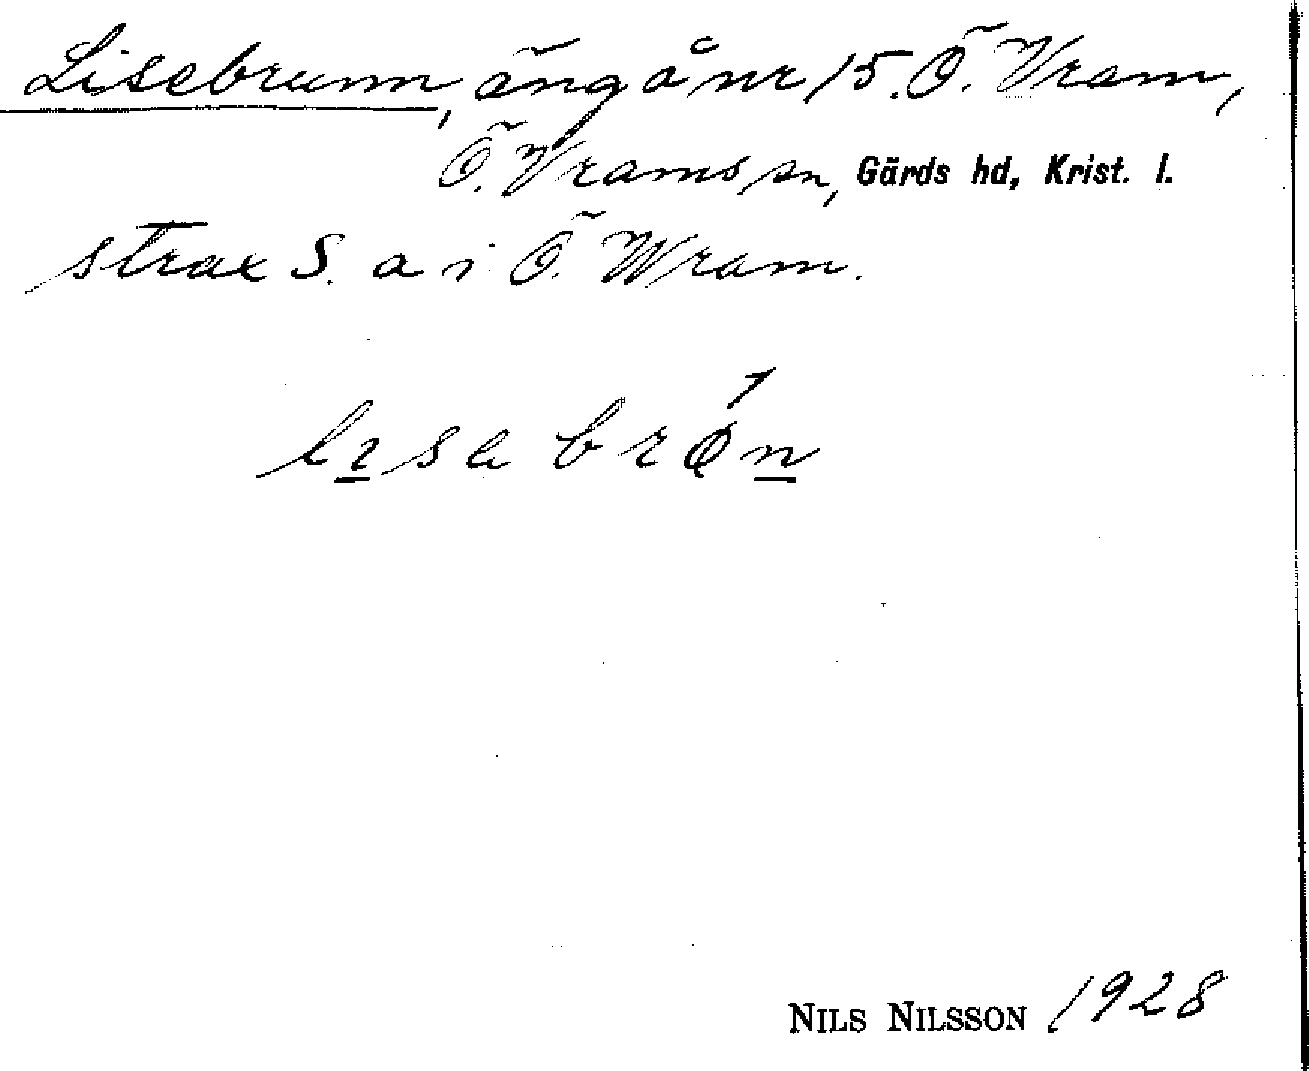 Lisebrunn, äng å nr 15. Ö. Vram,
Ö. Vrams sn, Gärds hd, Krist. l.
strax S. a i Ö. Wram.
lısabrǿn
NILS NILSSON 1928